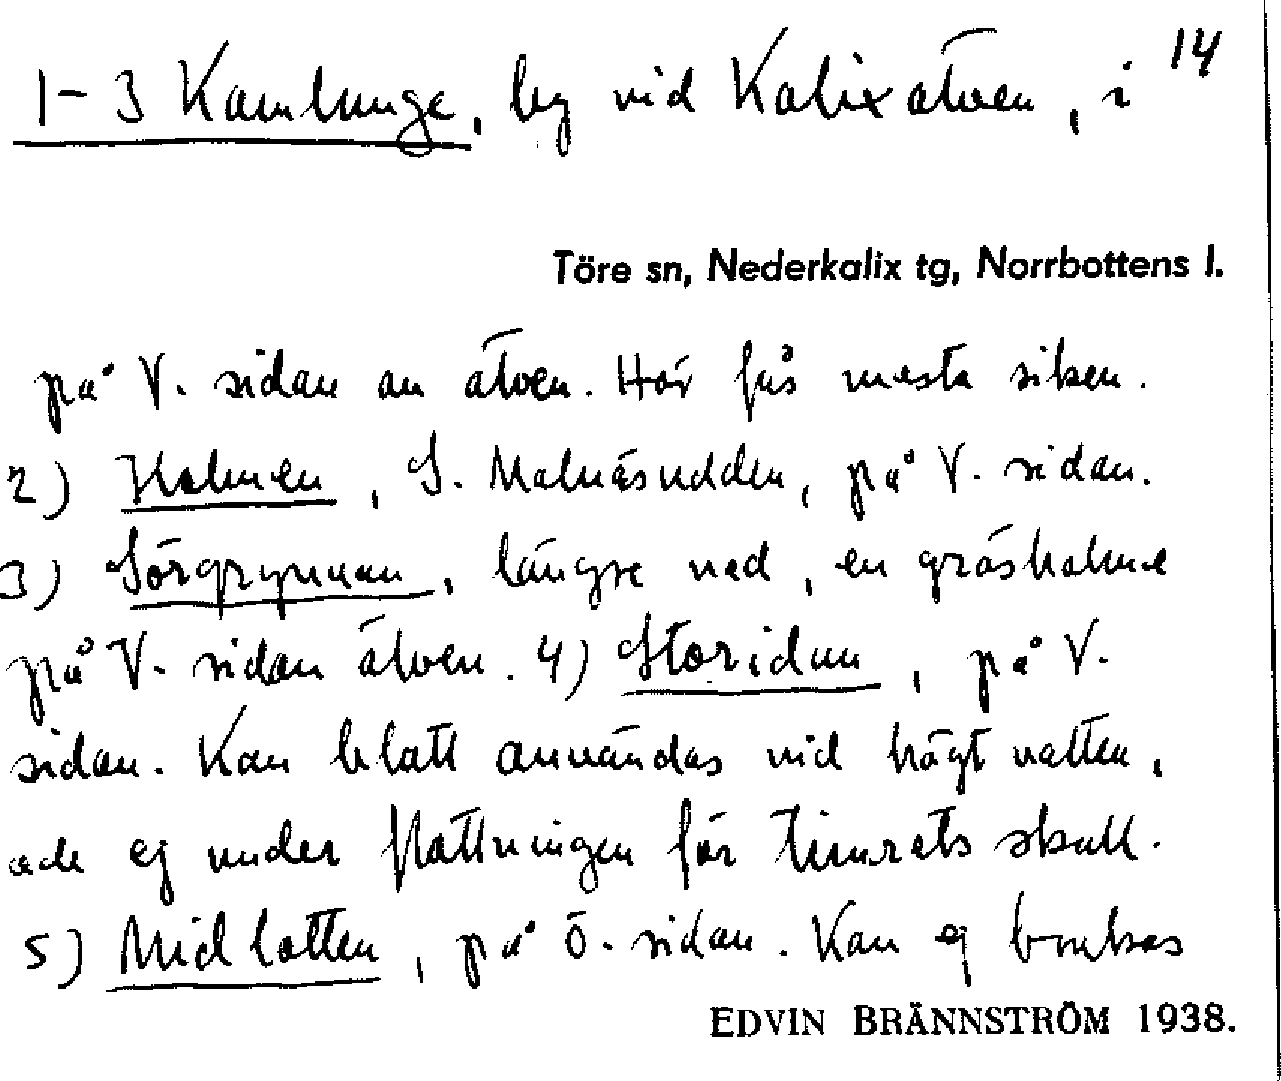 1-3 Kamlunge, by vid Kalixälven, i 14
Töre sn, Nederkalix tg, Norrbottens l.
på V. sidan av älven. Här fås mesta siken.
2) Holmen, S. Malnäsudden, på V. sidan.
3) Sörgrynnan, längre ned, en gräsholme
på V. sidan älven. 4) Storidun, på V.
sidan. Kan blott användas vid högt vatten,
och ej under flottningen för timrets skull.
5) Midlotten, på Ö. sidan. Kan ej brukas
EDVIN BRÄNNSTRÖM 1938.